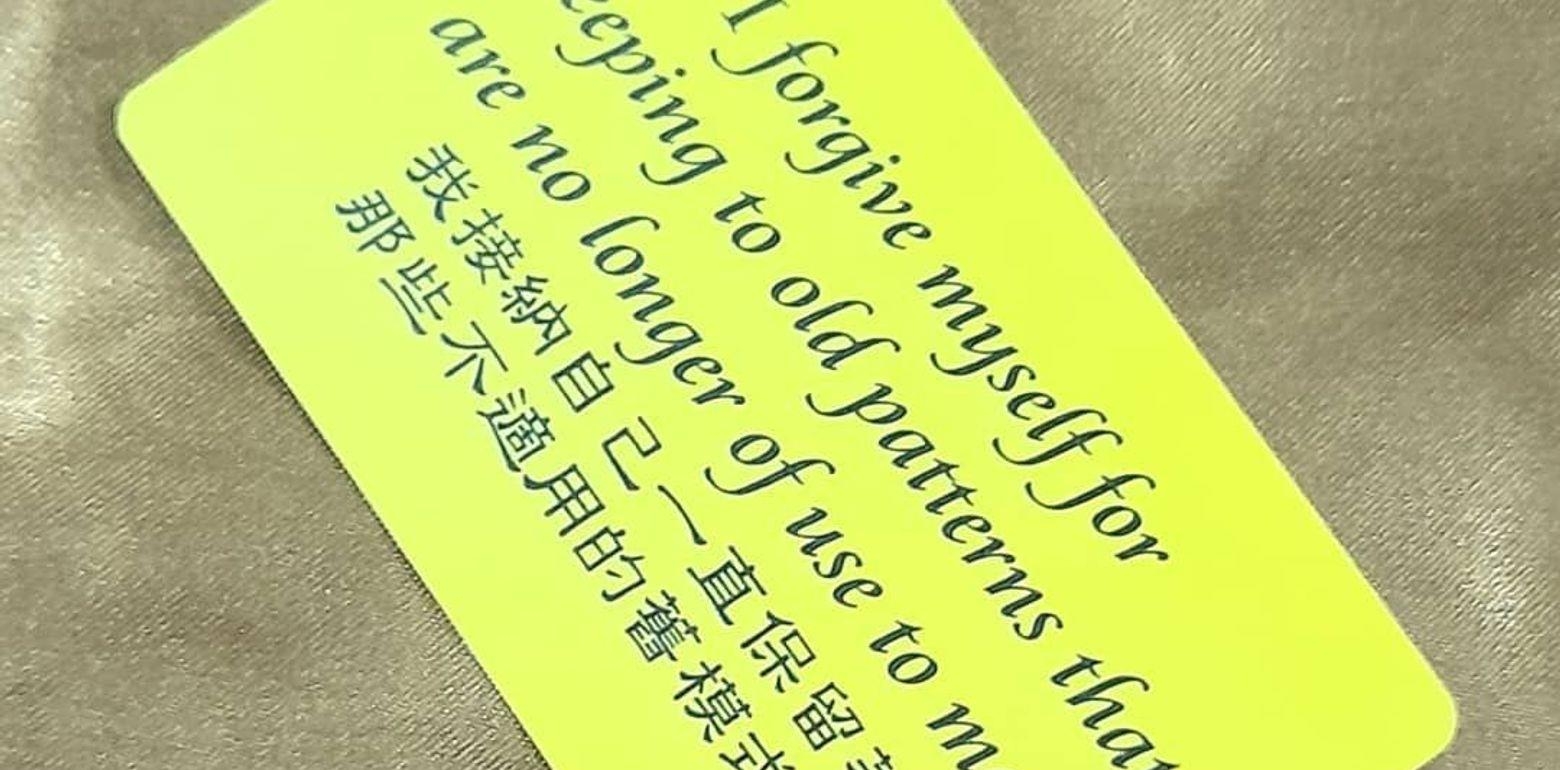 I forgive myself for
eeping to old patterns that
are no longer of use to m
我接納自己一直保留著
那些不適用的舊模式